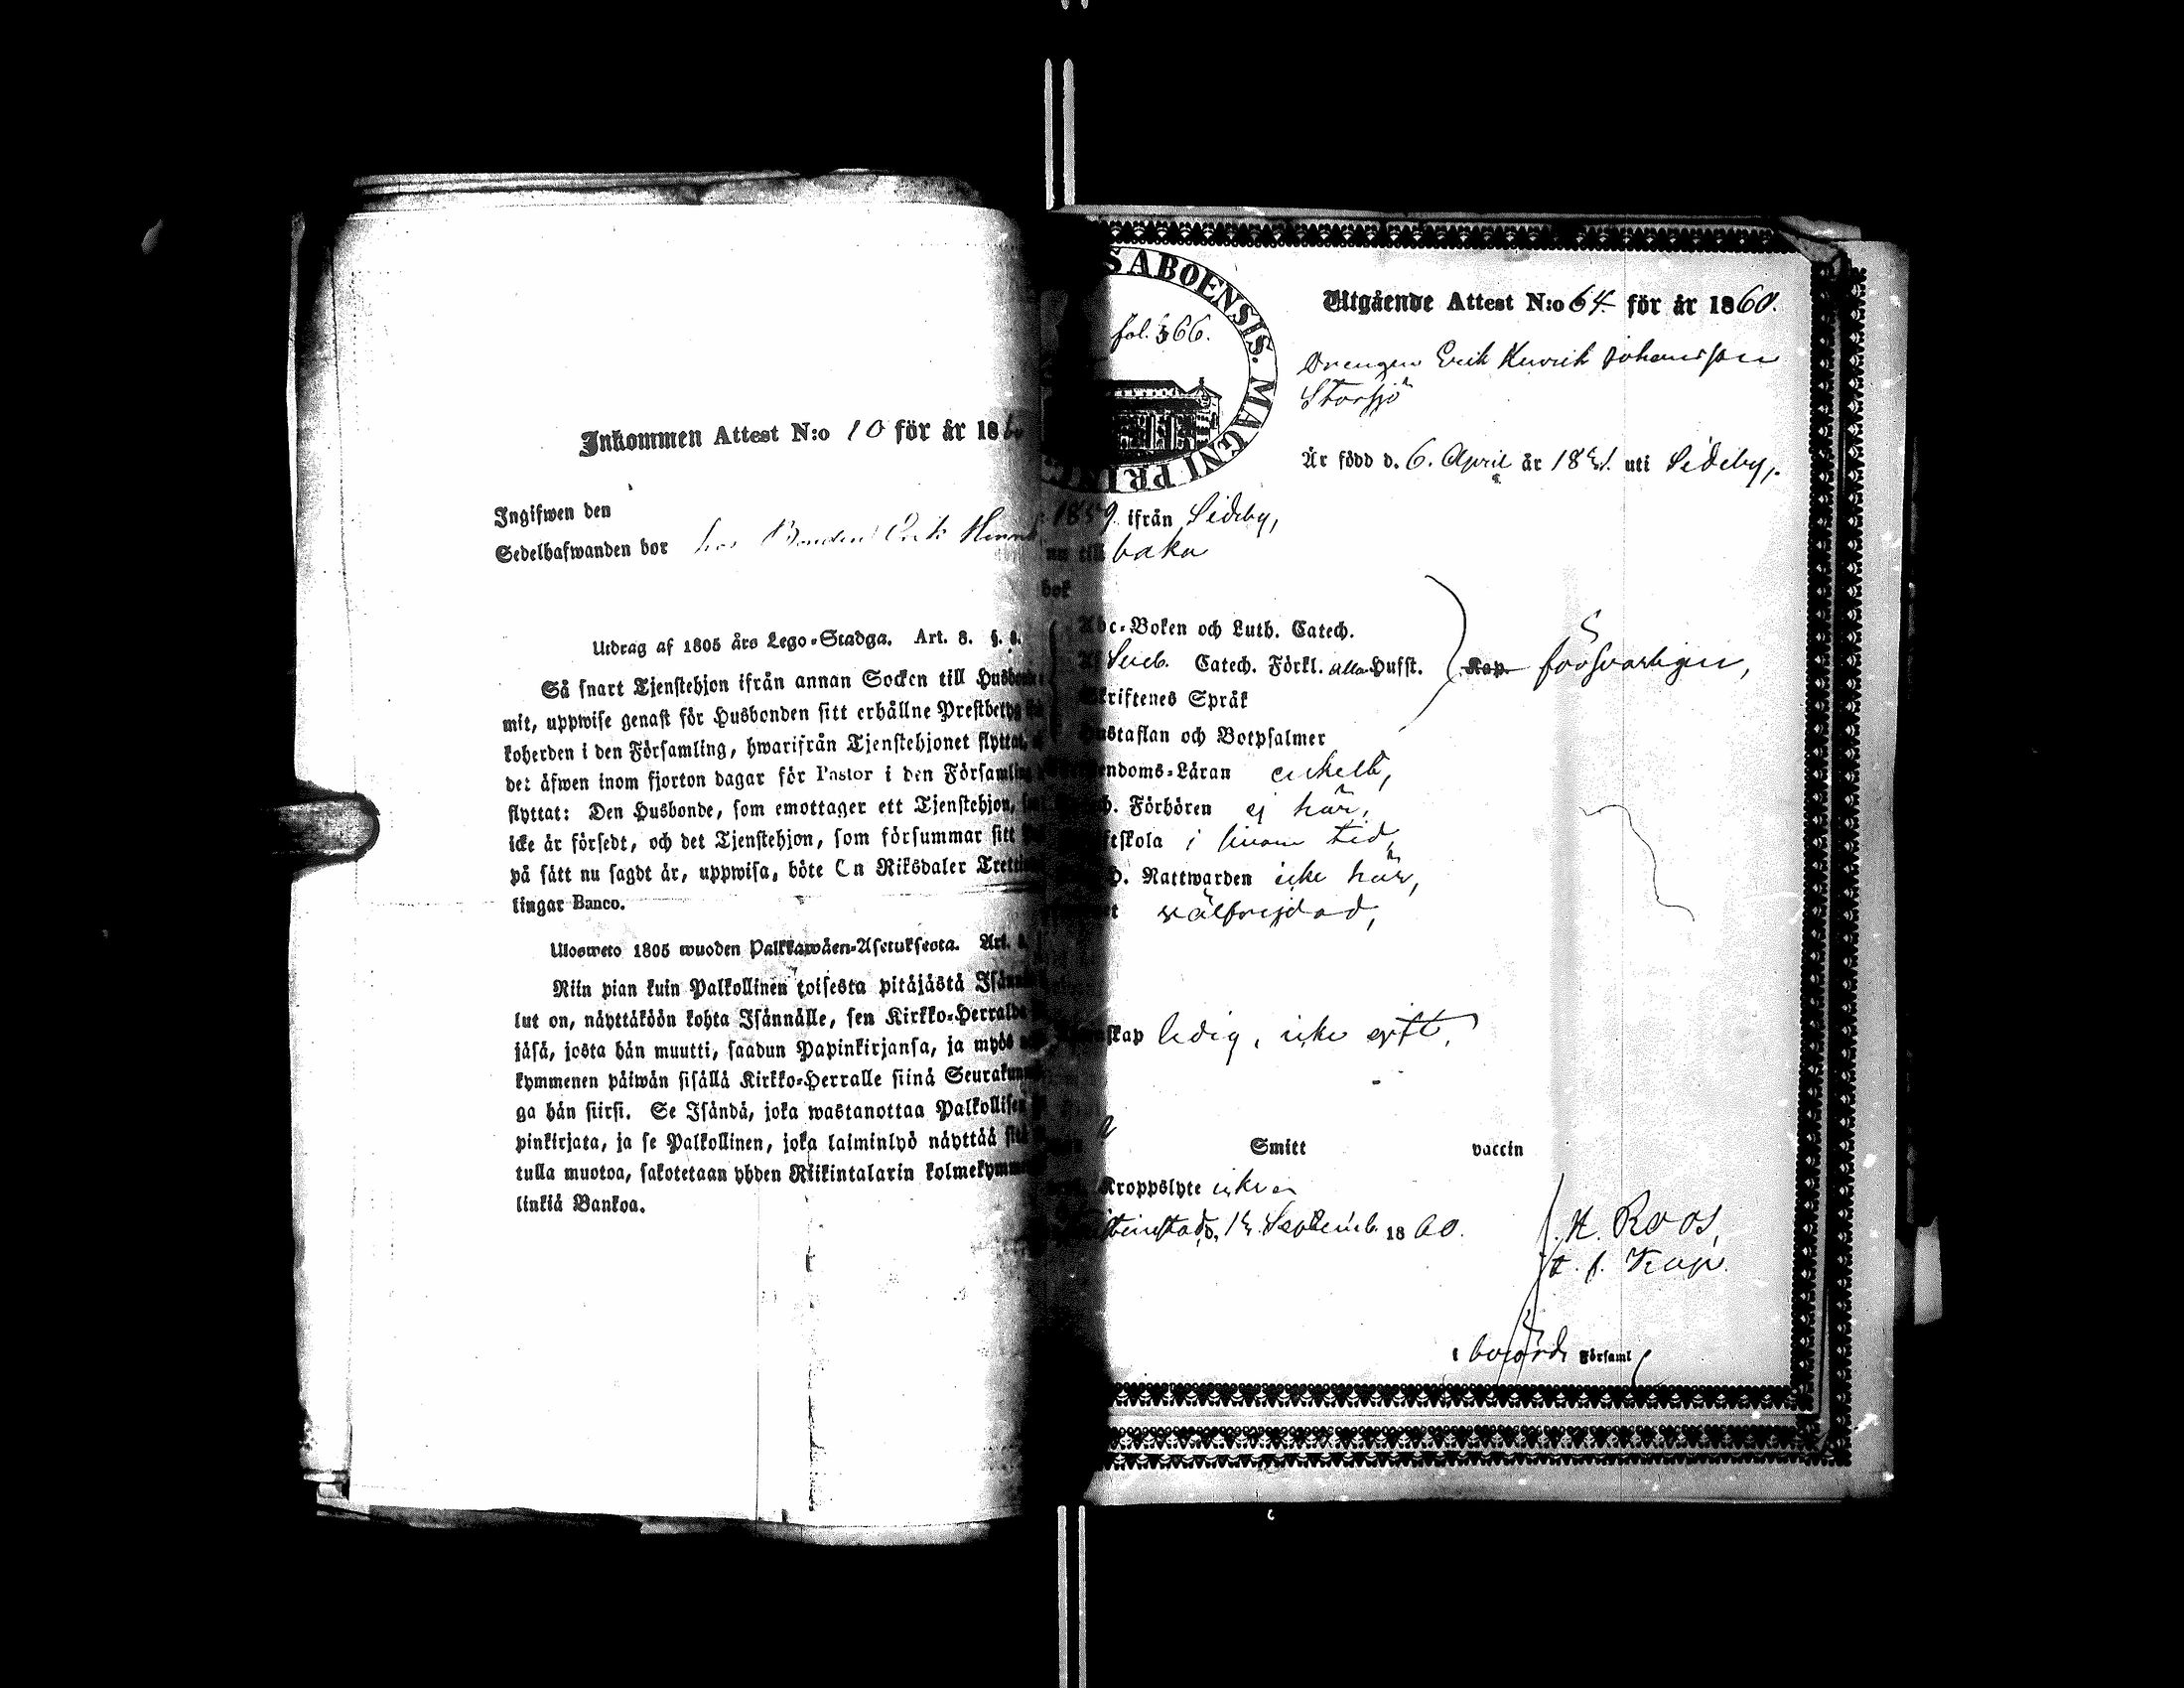 Inkommen Attest N:o 10 för år 186
Ingifwen den
Sedelhafwanden bor hos Bonden Erik
Utdrag af 1805 års Lego-Stadga. Art. 8. §.
Så snart Tjenstehjon ifrån annan Socken till
mit, uppwise genast för Husbonden sitt erhållne
koherden i den Församling, hwarifrån Tjenstehjonet flyttat,
det äfwen inom fjorton dagar för Pastor i den
flyttat: Den Husbonde, som emottager ett Tjenstehjon,
icke är försedt, och det Tjenstehjon, som försummar sitt
på sätt nu sagdt är, uppwisa, böte En Riksdaler
lingar Banco.
Ulosweto 1805 wuoden Palkkawäen-Asetuksesta. Art.
Niin pian kuin Palkollinen toisesta pitäjästä
lut on, näyttäköön kohta Isännälle, sen Kirkko-Herralda
jäsä, josta hän muutti, saadun Papinkirjansa, ja myös
kymmenen päiwän sisällä Kirkko-Herralle siinä
ga hän siirsi. Se Isändä, joka wastanottaa
pinkirjata, ja se Palkollinen, joka laiminlyö näyttää
tulla muotoa, sakotetaan yhden Riikintalarin
linkiä Bankoa.
SABOENSIS. MAGNI PRINC
fol. 366.
Utgående Attest N:o 64 för år 1860.
Drengen Erik Henrik Johansson
Storsjö
Är född d. 6. April år 18 uti Sideby,
1859 ifrån Sideby,
nu till baka
bok
Abc-Boken och Luth. Catech.
Sveb. Catech. Förkl. alla Hufst. Kap. försvarligen,
Skriftenes Språk
Hustaflan och Botpsalmer
endoms-Läran enkelt,
Förhören ej här,
skola i sinom tid,
Nattwarden icke här,
välfrejdad,
skap ledig, icke gift,
Smitt vaccin
Kroppslyte icke
Septemb. 1860. H. Roos,
t. f. Kap.
i Församl